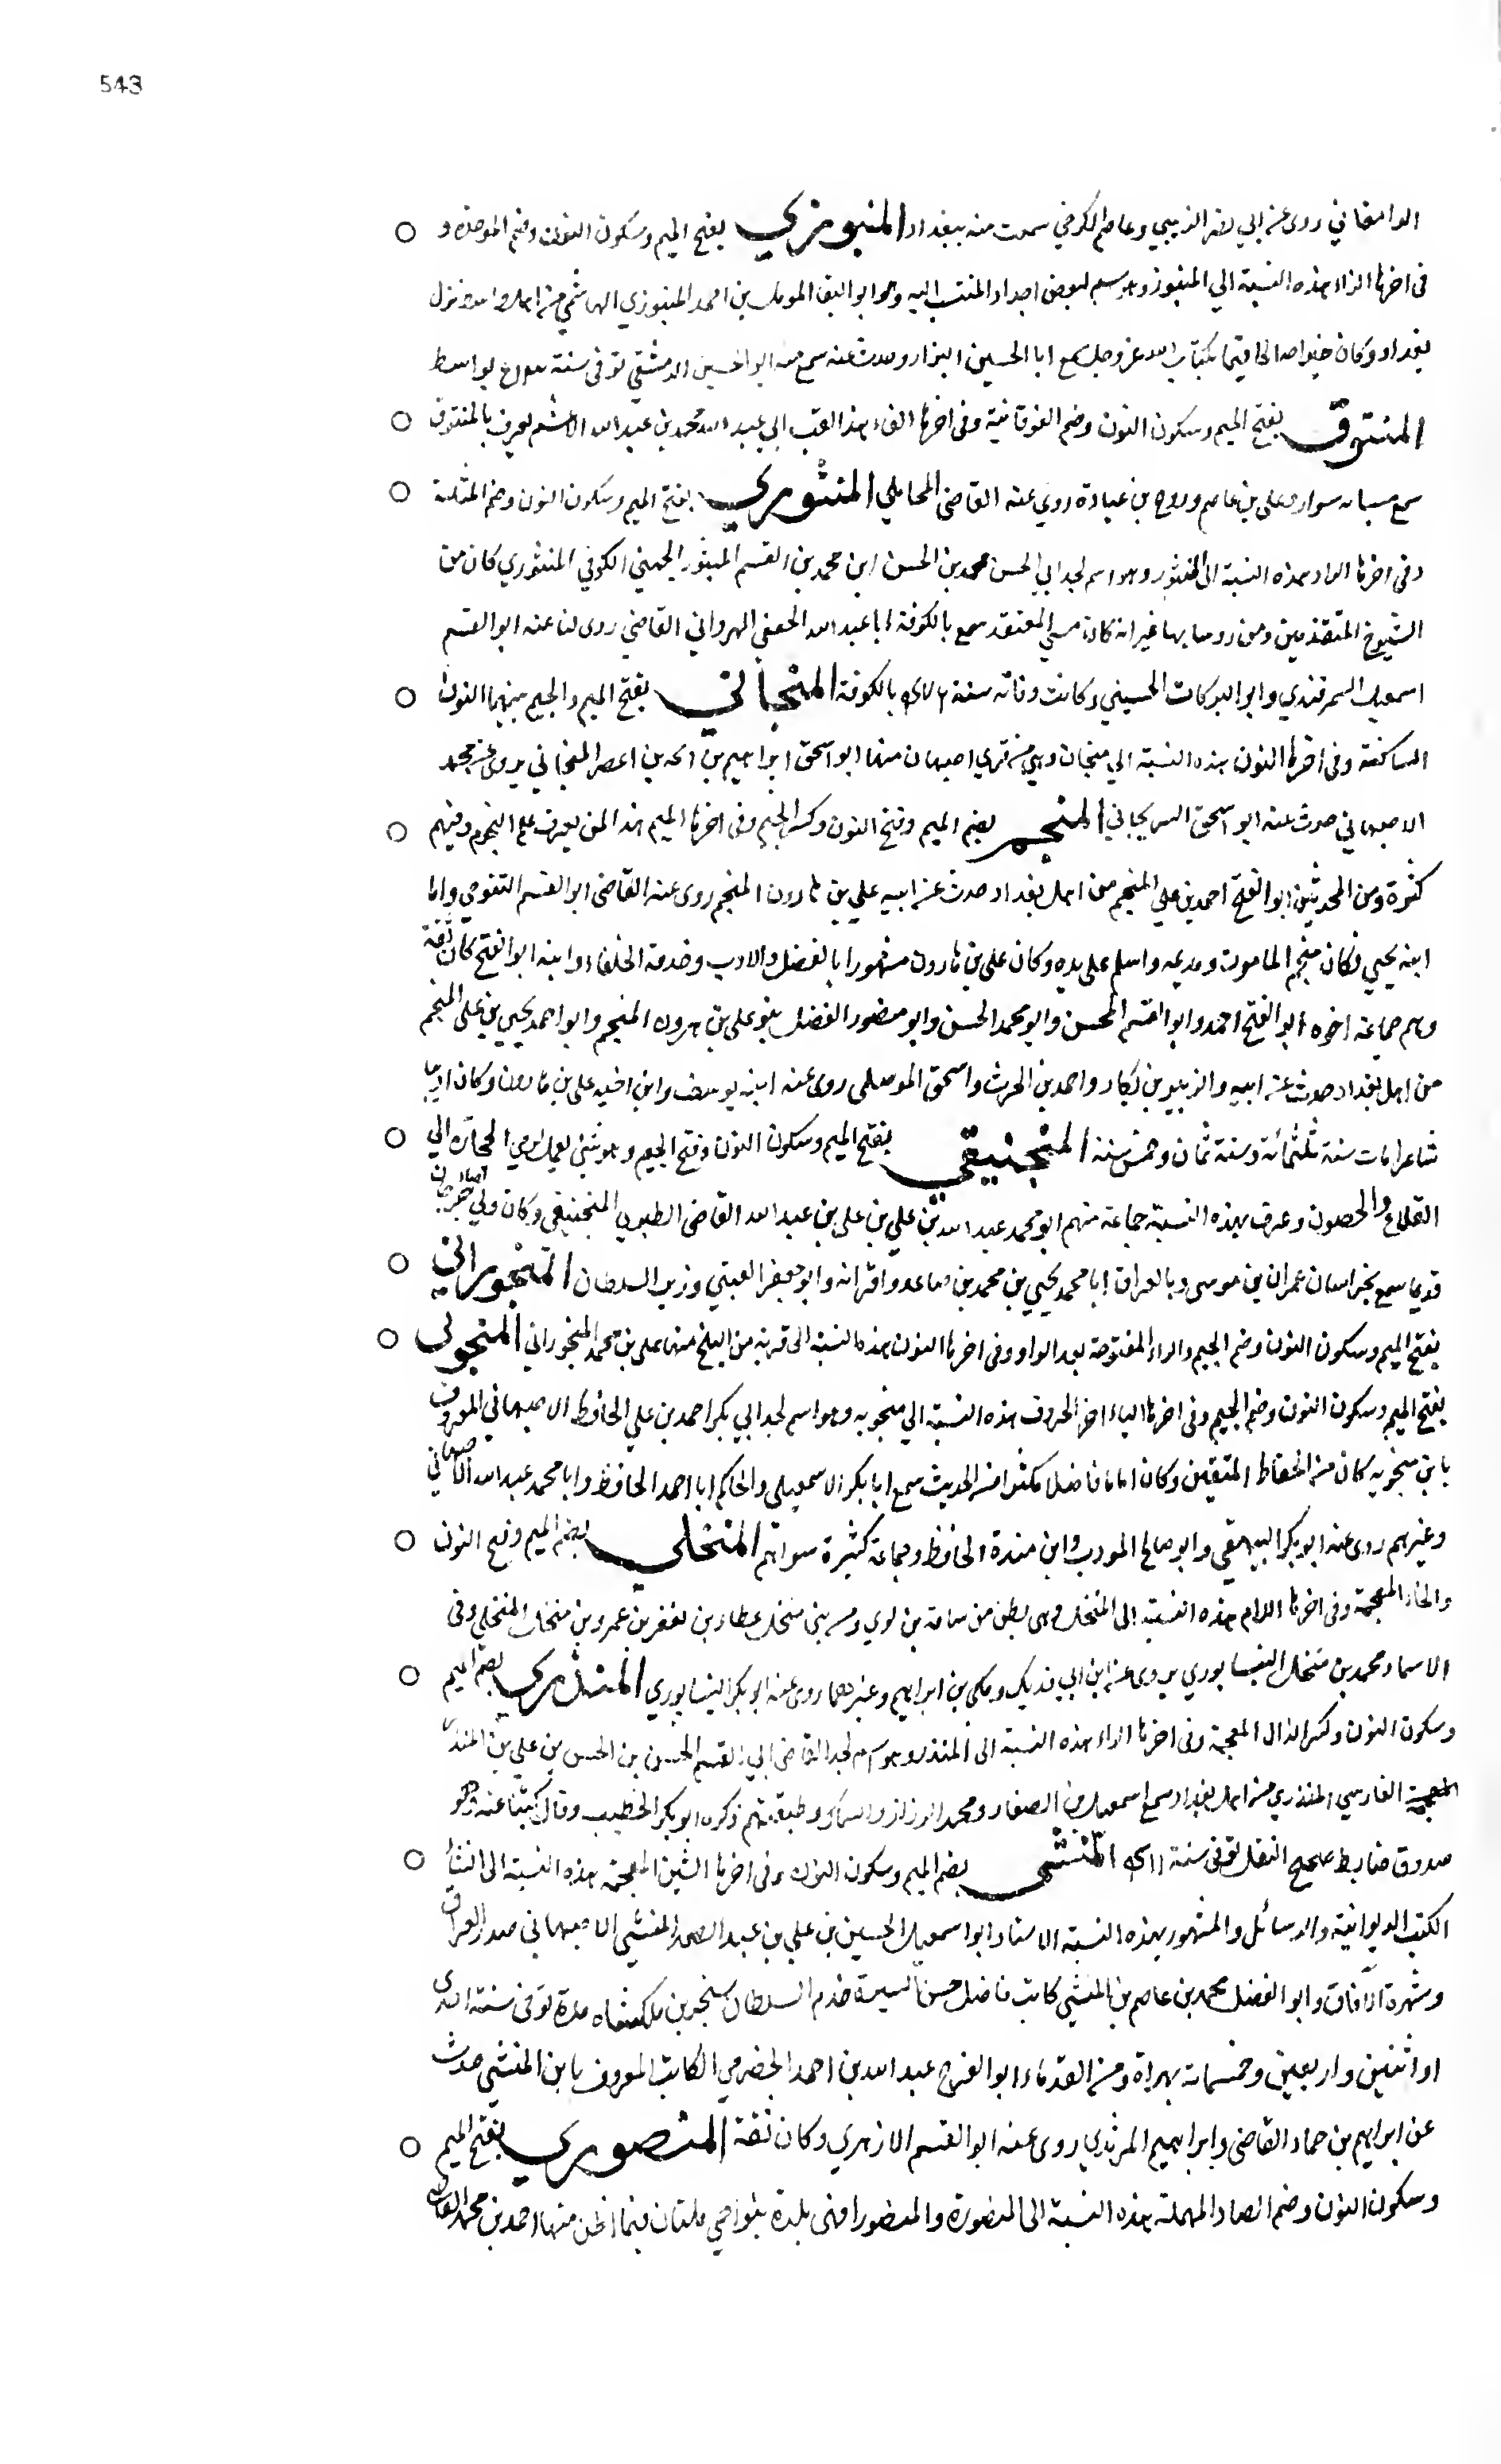 543
الدامغاني روى عن ابي نصر الزينبي وعاصم الكرخي سمعت منه ببغداد المنبوزي بفتح الميم وسكون النون وضم الموحدة و
في اخرها الزاء هذه النسبة الي المنبوز وهو اسم لبعض اجداد المنتسب اليه وهو ابو البقا المومل بن احمد المنبوزي الهاشمي من اهل واسط نزل
بغداد وكان خيرا صالحا قيما بكتاب الله عز وجل سمع ابا الحسين البزار وحدث عنه سمع منه ابو الحسين الدمشقي توفى سنة بواسط
المنتوف بفتح الميم وسكون النون وضم الفوقانية وفى اخرها الفاء هذا لقب ابي عبد الله محمد بن عبد الله الاعشم يعرف بالمنتوف
سمع سوار وعلى بن عاصم وروح بن عبادة روي عنه القاضى المحاملي المنثوري بفتح الميم وسكون النون وضم المثلثة
وفى اخرها الراء هذه النسبة الى المنثور وهو اسم لجد ابي الحسن محمد بن الحسن ابن محمد بن القسم المنثور الجهني الكوفي المنثوري كان من
الشيوخ المتقدمين ومن روسا بها غير انه كان مسي المعتقد سمع بالكوفة ابا عبد الله الجعفي الهرواني القاضي روى لنا عنه ابو القسم
اسمعيل السمرقندي وابو البركات الحسيني وكانت وفاته سنة بالكوفة المنجاني بفتح الميم والجيم بينهما النون
الساكنة وفى اخرها النون هذه النسبة الي منجان وهي من قري اصبهان منها ابو اسحق ابراهيم بن احمد بن اعصر المنجاني يروى عن محمد
الاصبهاني حدث عنه ابو اسحق السريجاني المنجم بضم الميم وفتح النون وكسر الجيم وفى اخرها الميم هذا لمن يعرف علم النجوم وفيهم
كثرة ومن المحدثين ابو الفتح احمد بن علي المنجم من اهل بغداد حدث عن ابيه علي بن هارون المنجم روى عنه القاضى ابو القسم التنوخي واما
ابنه يحيي فكان منجم المامون ونديمه واسلم على يده وكان على بن هارون مشهورا بالفضل والادب وخدمة الخلفاء وابنه ابو الفتح كان ثقة
وهم جماعة اخوه ابو الفتح احمد وابو القسم المحسن وابو محمد الحسن وابو منصور الفضل بنو على بن هرون المنجم وابو احمد يحيي بن على المنجم
من اهل بغداد حدث عن ابيه والزبير بن بكار واحمد بن الحرث واسحق الموصلى روى عنه ابنه يوسف وابن اخيه على بن هارون وكان اديبا
شاعرا مات سنة ثلثمائة وسنة ثمان وخمسين سنة المنجنيقي بفتح الميم وسكون النون وفتح الجيم وهو شئ يعمل لرمي الحجارة الي
القلاع والحصون وعرف بهذه النسبة جماعة منهم ابو محمد عبد الله بن علي بن على بن عبد الله القاضى الطبري المنجنيقي وكان ولي قضاء جرجان
قديما سمع بخراسان عمران بن موسى وبالعراق ابا محمد يحيي بن محمد بن صاعد واقرانه وابو جعفر العتبي وزير السلطان المنجوراني
بفتح الميم وسكون النون وضم الجيم والراء المفتوحة بعد الواو وفى اخرها النون هذه النسبة الى قرية من البلخ منها على بن محمد المنجوراني المنجولي
بفتح الميم وسكون النون وضم الجيم وفى اخرها الياء اخر الحروف هذه النسبة الي منجويه وهو اسم لجد ابي بكر احمد بن علي الحافظ الاصبهاني المعروف
بابن منجويه كان من الحفاظ المتقنين وكان اماما فاضلا مكثرا من الحديث سمع ابا بكر الاسمعيلي والحاكم ابا احمد الحافظ وابا محمد عبد الله الاصبهاني
وغيرهم روى عنه ابو بكر البيهقي وابو صالح الموذن وابن مندة الحافظ وجماعة كثيرة سواهم المنخلي بضم الميم وفتح النون
والخاء المعجمة وفى اخرها اللام هذه النسبة الى المنخل وهى بطن من سامة بن لوي ومن بنى منخل عطاء بن يعفر بن عمرو بن منخل المنخلي وفى
الاسماء محمد بن منخل النيسابوري يروى عن ابن ابي فديك ومكى بن ابراهيم وغيرهما روى عنه ابو بكر النيسابوري المنذري بضم الميم
وسكون النون وكسر الذال المعجمة وفى اخرها الراء هذه النسبة الى المنذر وهو اسم لجد القاضى ابي القسم الحسن بن الحسن بن علي بن المنذر
الفارسي المنذري من اهل بغداد سمع اسمعيل بن الصفار ومحمد الرزاز والسماك وطبقتهم ذكره ابو بكر الخطيب وقال كتبنا عنه وهو
صدوق ضابط صحيح النقل توفى سنة ٤١١ المنشي بضم الميم وسكون النون وفى اخرها الشين المعجمة هذه النسبة الى انشاء
الكتب الديوانية والرسائل والمشهور بهذه النسبة الاستاد ابو اسمعيل الحسين بن علي بن عبد الصمد المنشي الاصبهاني صدر العراق
وشهرة الآفاق وابو الفضل محمد بن عاصم بن المنشي كاتب فاضل حسن السيرة خدم السلطان سنجر بن ملكشاه مدة توفى سنة احدى
او اثنتين واربعين وخمسمائة بهراة ومن القدماء ابو الفرج عبد الله بن احمد الحضرمي الكاتب المعروف بابن المنشي حدث
عن ابراهيم بن حماد القاضى وابراهيم المرثدي روى عنه ابو القسم الازهري وكان ثقة المنصوري بفتح الميم
وسكون النون وضم الصاد المهملة هذه النسبة الى المنصورة والمنصور اما الاول فهى بلدة بنواحي ملتان فيما اظن منها احمد بن محمد القاضى